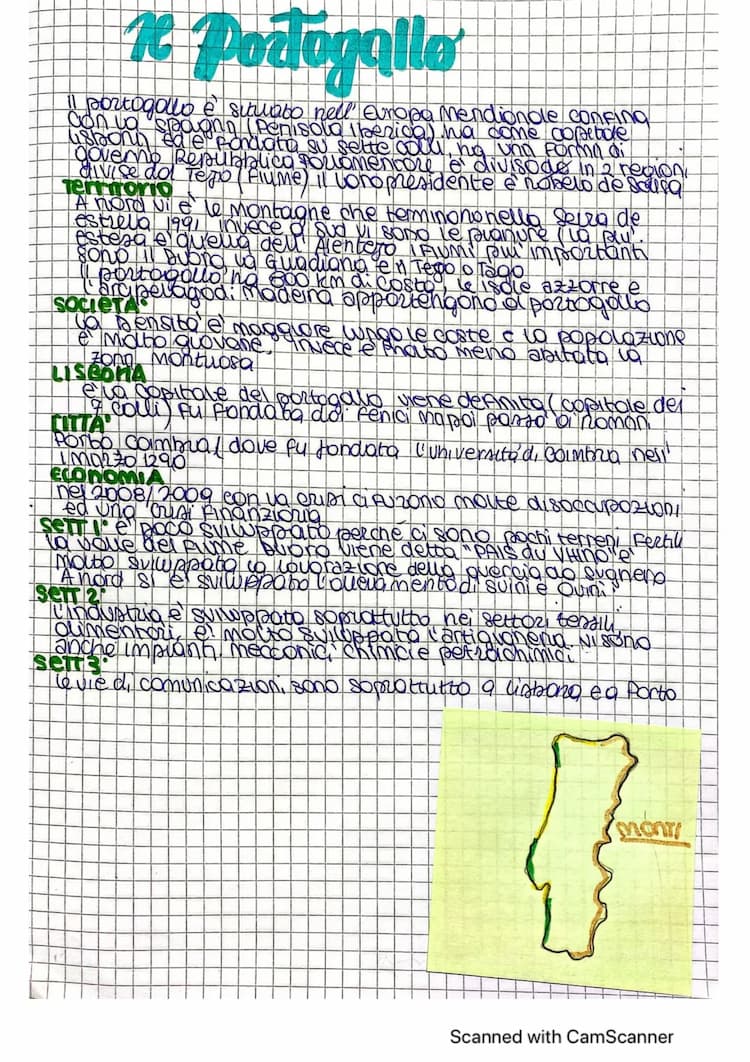 Il Portogallo
Il portogallo è situato nell' Europa Meridionale confina
con la spagna (Penisola Iberica) ha come capitale
Lisbona ed è fondata su sette colli, ha una forma di
governo Repubblica parlamentare e' divisode in 2 regioni
divise dal Tejo (fiume) il loro presidente è rabelo de sousa
Territorio
A nord vi è le montagne che terminano nella serra de
estrela 1991 invece a sud vi sono le pianure (la piu'
estesa e' quella dell' Alentejo i fiumi piu' importanti
sono il Duoro la Guadiana e n Tejo o Tago
Il portogallo ha 800 km di costa, le isole azzorre e
l'arcipelagodi Madeira appartengono al portogallo
SOCIETA'
la densita' e' maggiore lungo le coste e la popolazione
e' molto giovane, invece è molto meno abitata la
zona montuosa
LISBONA
è la capitale del portogallo viene definita (capitale dei
7 colli) fu fondata dai fenici ma poi passò ai romani
CITTA'
Porto, coimbra (dove fu fondata l'università di coimbra nell'
1 marzo 1290
ECONOMIA
nel 2008/2009 con la crisi ci furono molte disoccupazioni
ed una crisi finanziaria
Sett 1° e' poco sviluppato perché ci sono pochi terreni fertili
la valle del fiume Duoro viene detta "PAIS du VHINO" e'
molto sviluppata la lavorazione della quercia da sughero
A nord si è sviluppato l'allevamento di suini e ovini
Sett 2°
l'industria e' sviluppata soprattutto nei settori tessili,
alimentari, e' molto sviluppato l'artigianeria. vi sono
anche impianti meccanici, chimici e petrolchimici.
Sett 3°
le vie di comunicazioni sono soprattutto a lisbona e a Porto
MONTI
Scanned with CamScanner